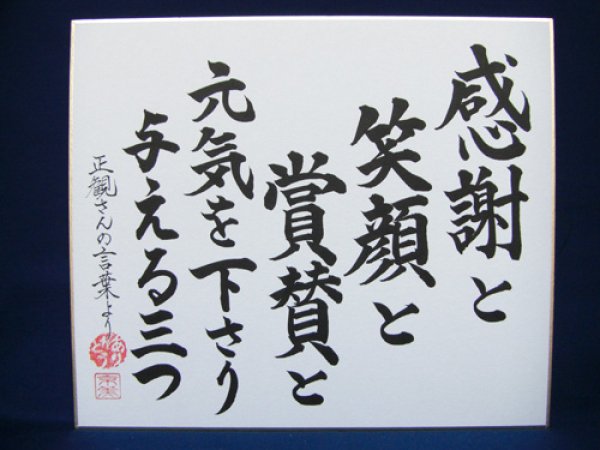 感謝と
笑顔と
賞賛と
元気を下さり
与える三つ
正観さんの言葉より
ありがとう